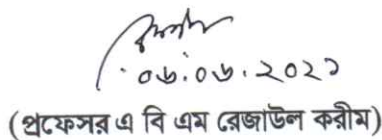 ০৬.০৬.২০২১
(প্রফেসর এ বি এম রেজাউল করীম)